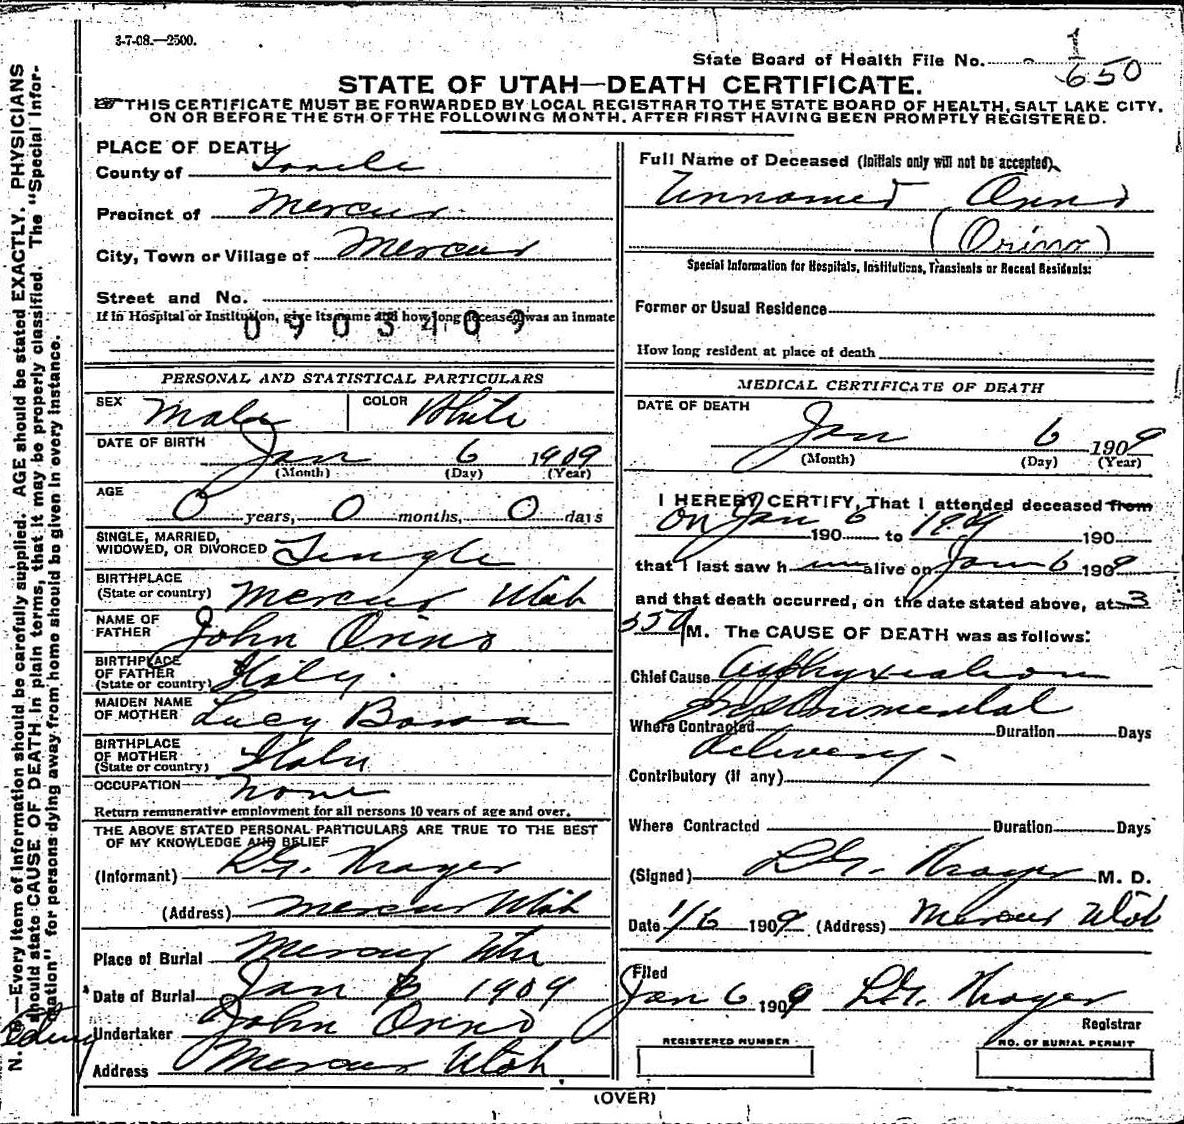 3-7-08.—2500.
State Board of Health File No. 1
650
STATE OF UTAH—DEATH CERTIFICATE.
THIS CERTIFICATE MUST BE FORWARDED BY LOCAL REGISTRAR TO THE STATE BOARD OF HEALTH, SALT LAKE CITY,
ON OR BEFORE THE 5TH OF THE FOLLOWING MONTH, AFTER FIRST HAVING BEEN PROMPTLY REGISTERED.
N. B.—Every item of information should be carefully supplied. AGE should be stated EXACTLY. PHYSICIANS
should state CAUSE OF DEATH in plain terms, that it may be properly classified. The "Special Infor-
mation" for persons dying away from home should be given in every instance.
PLACE OF DEATH
County of Tooele
Precinct of Mercur
City, Town or Village of Mercur
Street and No.
If in Hospital or Institution, give its name and how long deceased was an inmate
0903409
PERSONAL AND STATISTICAL PARTICULARS
SEX Male COLOR White
DATE OF BIRTH
Jan 6 1909
(Month) (Day) (Year)
AGE
0 years, 0 months, 0 days
SINGLE, MARRIED,
WIDOWED, OR DIVORCED Single
BIRTHPLACE
(State or country) Mercur Utah
NAME OF
FATHER John Orino
BIRTHPLACE
OF FATHER
(State or country) Italy.
MAIDEN NAME
OF MOTHER Lucy
BIRTHPLACE
OF MOTHER
(State or country) Italy
OCCUPATION None
Return remunerative employment for all persons 10 years of age and over.
THE ABOVE STATED PERSONAL PARTICULARS ARE TRUE TO THE BEST
OF MY KNOWLEDGE AND BELIEF
(Informant)
(Address) Mercur Utah
Place of Burial Mercur Utu
Date of Burial Jan 6 1909
Undertaker John Orino
Address Mercur Utah
Full Name of Deceased (Initials only will not be accepted)
Unnamed Orino
(Orino)
Special Information for Hospitals, Institutions, Transients or Recent Residents:
Former or Usual Residence
How long resident at place of death
MEDICAL CERTIFICATE OF DEATH
DATE OF DEATH
Jan 6 1909
(Month) (Day) (Year)
I HEREBY CERTIFY, That I attended deceased from
on Jan 6 190 to 1909 190
that I last saw h im alive on Jan 6 1909
and that death occurred, on the date stated above, at 3
M. The CAUSE OF DEATH was as follows:
Chief Cause Asphyxiation
Instrumental
Where Contracted Duration Days
delivery -
Contributory (if any)
Where Contracted Duration Days
(Signed) M. D.
Date 1/6 1909 (Address) Mercur Utah
Filed
Jan 6 1909
Registrar
REGISTERED NUMBER
NO. OF BURIAL PERMIT
(OVER)